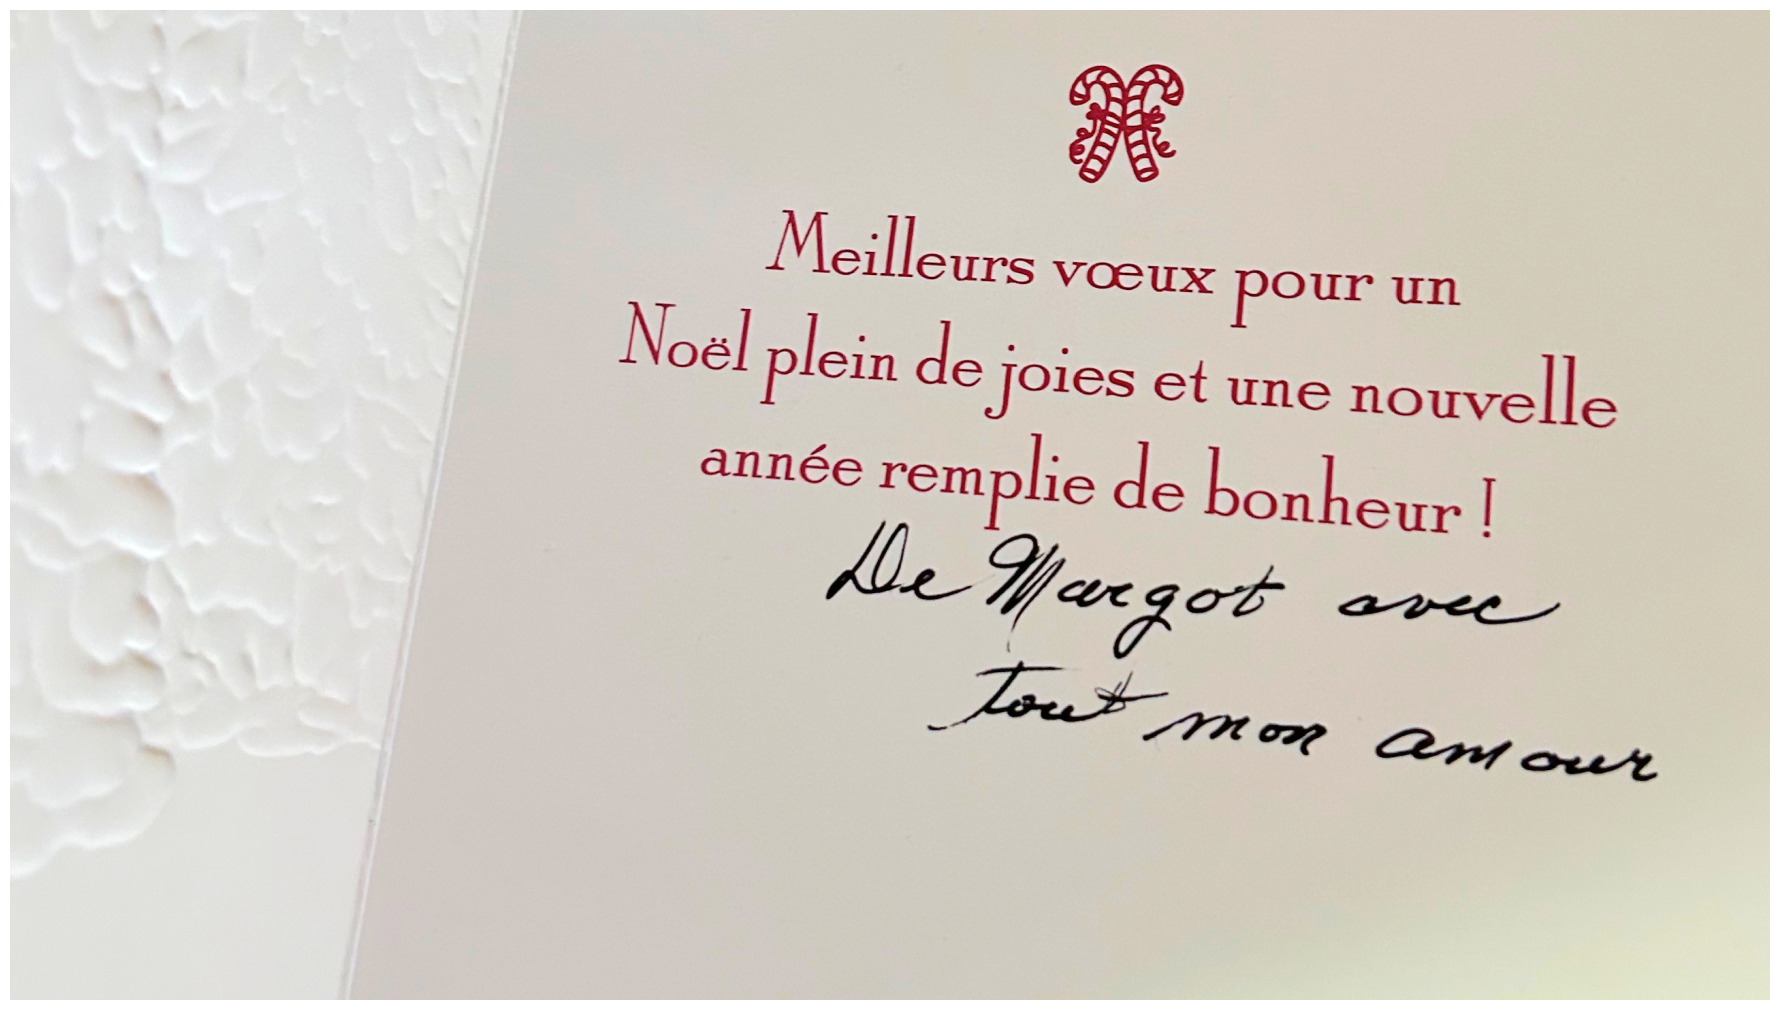 Meilleurs vœux pour un
Noël plein de joies et une nouvelle
année remplie de bonheur !
De Margot avec
tout mon amour